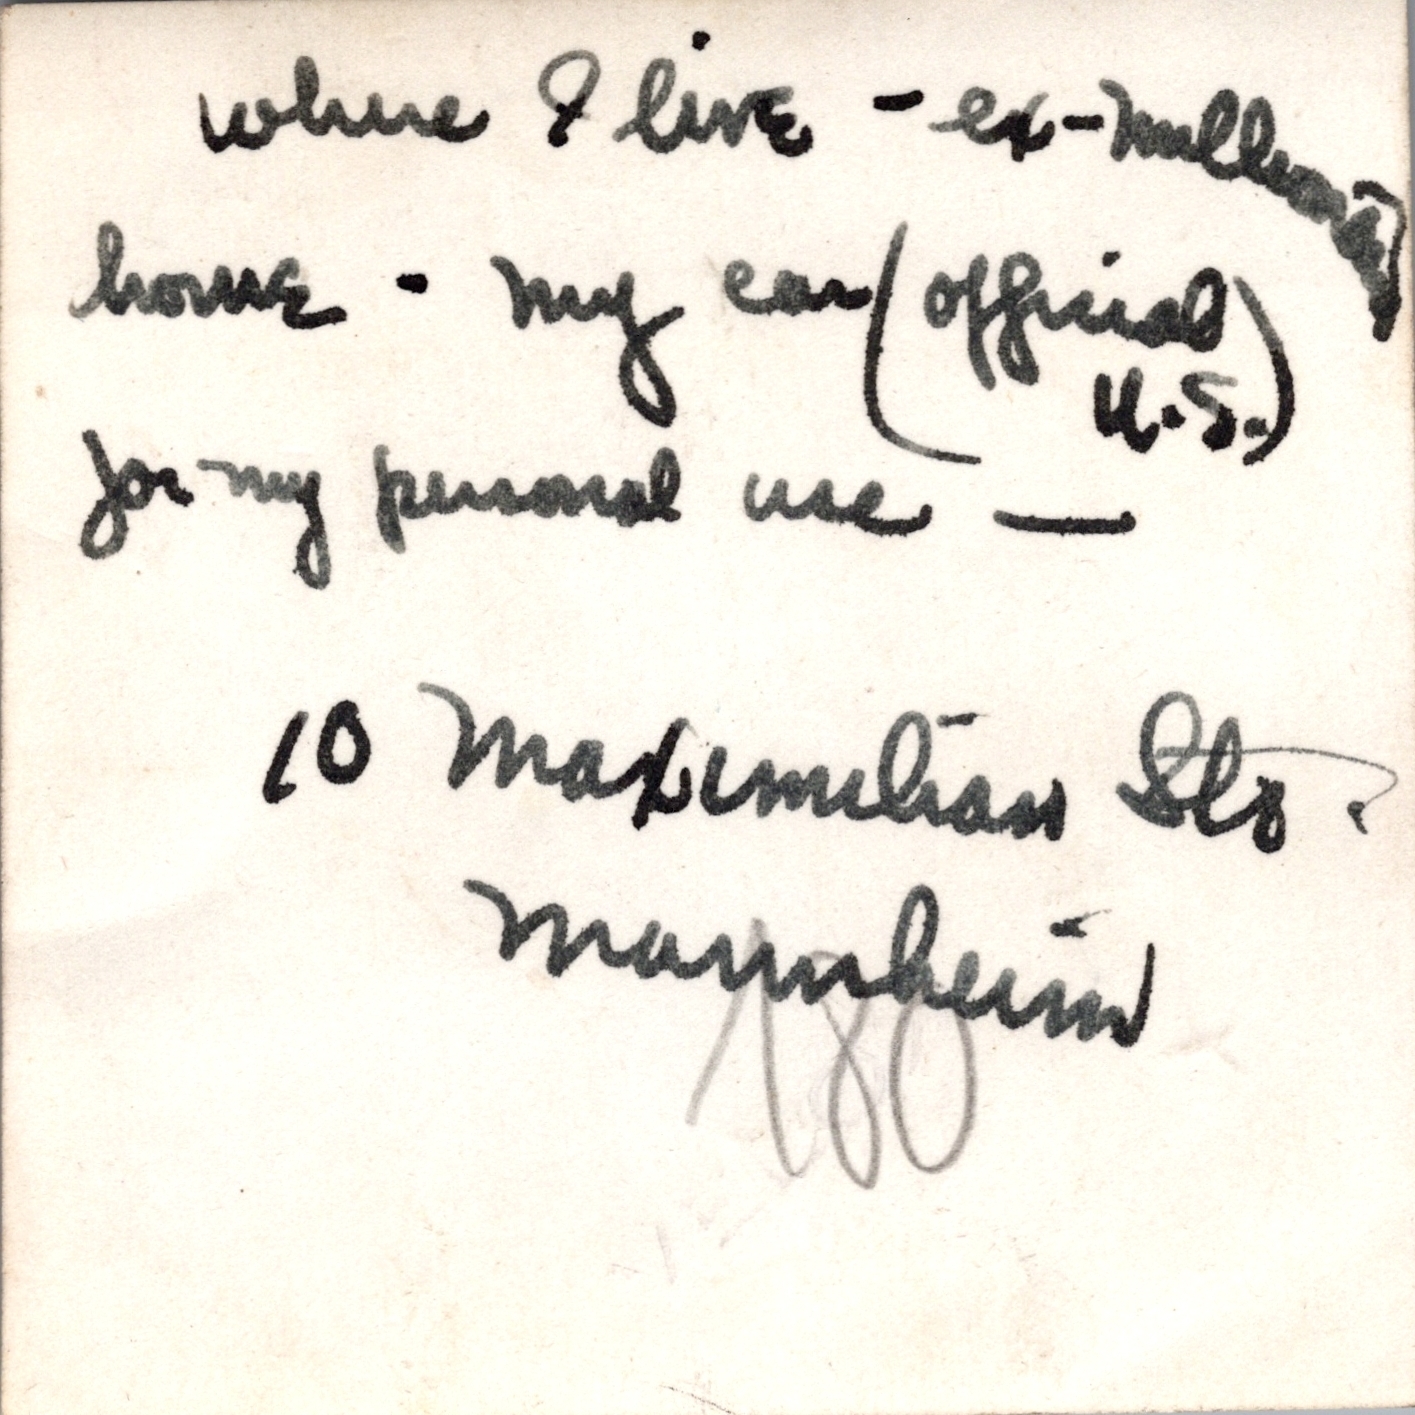 where I live - ex-millionaires
home - my car (official
U.S.)
for my personal use —
10 Maximilian Str.
Mannheim
180